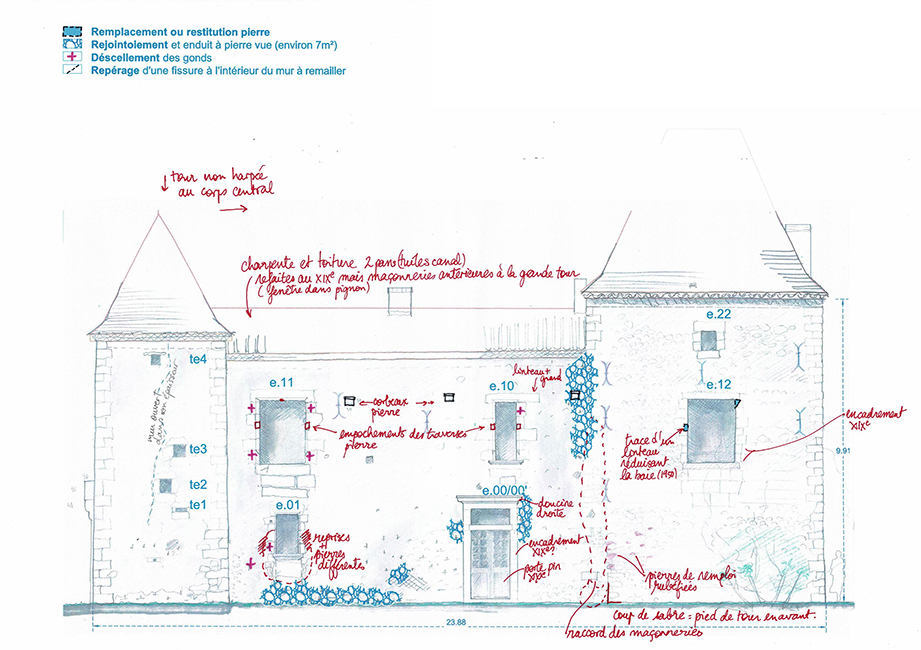 Remplacement ou restitution pierre
Rejointoiement et enduit à pierre vue (environ 7m²)
Déscellement des gonds
Repérage d'une fissure à l'intérieur du mur à remailler
tour non harpée
au corps central
charpente et toiture 2 pans (tuiles canal)
refaites au XIXe mais maçonneries antérieures à la grande tour
(fenêtre dans pignon)
e.22
te4
mur ouvert
dans son épaisseur
e.11
linteau +
grand
e.10
e.12
corbeaux
pierre
encadrement
XIXe
empochements des traverses
pierre
trace d'un
linteau
réduisant
la baie (1950)
9.91
te3
te2
te1
e.00/00'
doucine
droite
e.01
reprises
+
pierres
différentes
encadrement
XIXe?
porte pin
XIXe
pierres de remploi
rubéfiées
coup de sabre = pied de tour en avant.
raccord des maçonneries
23.88